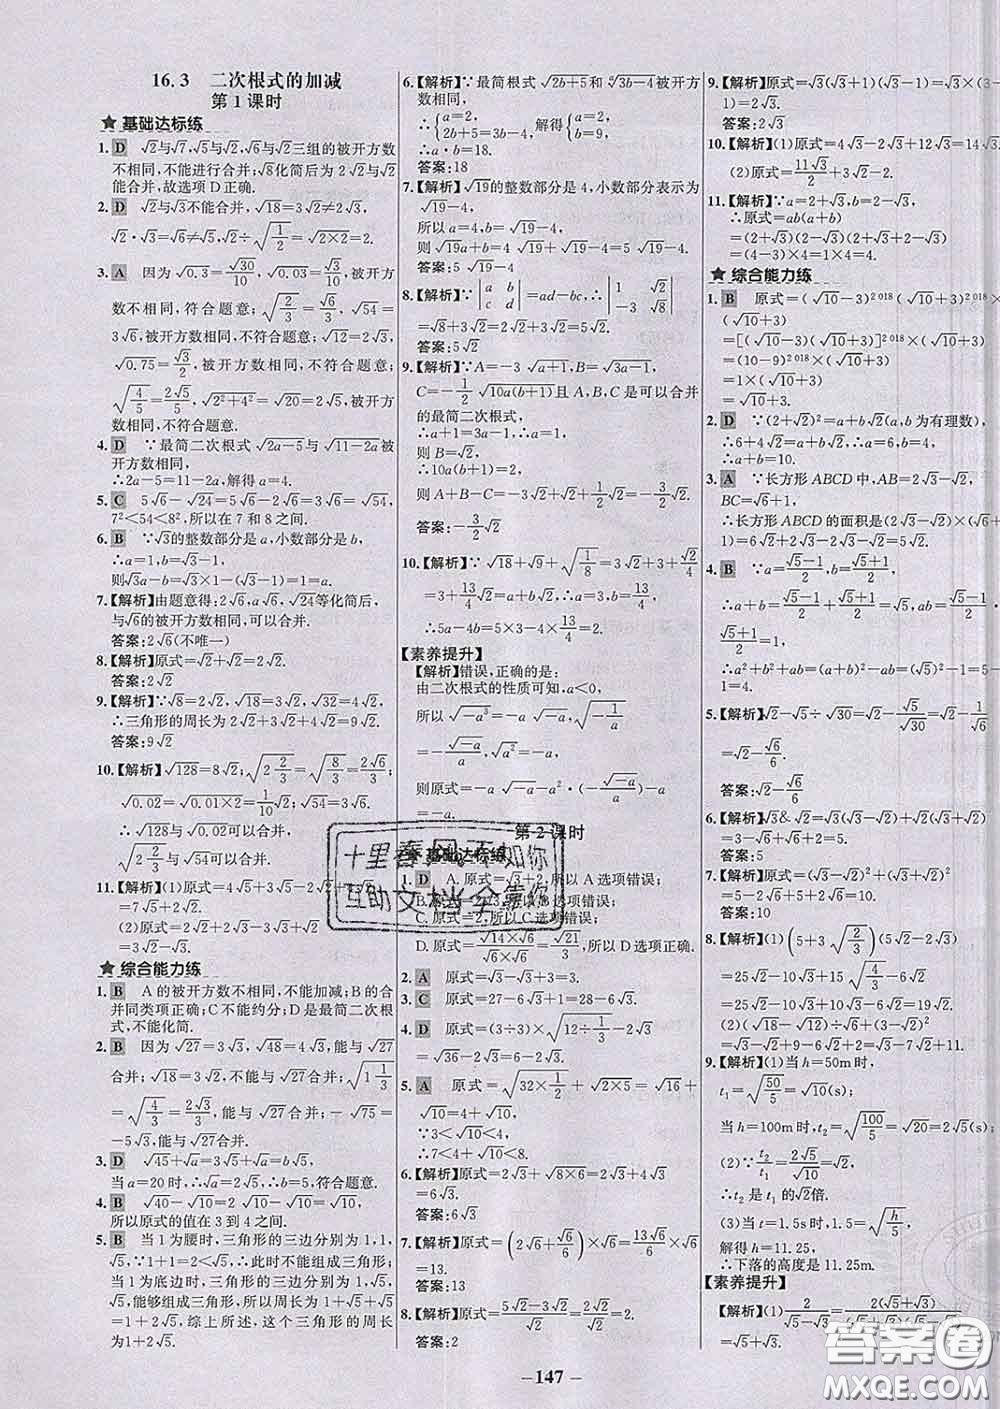 16.3 二次根式的加减
第1课时
★ 基础达标练
1. D √2与√7,√5与√2,√6与√2三组的被开方数
不相同,不能进行合并;√8化简后为2√2与√2能
合并,故选项D正确.
2. D √2与√3不能合并,√18=3√2≠2√3,
√2·√3=√6≠√5,√2÷√(1/2)=√(2×2)=2.
3. A 因为√0.3=√30/10,√0.03=√3/10,被开方
数不相同,符合题意;√(2/3)=√6/3,√54=
3√6,被开方数相同,不符合题意;√12=2√3,
√0.75=√3/2,被开方数相同,不符合题意.
√(4/5)=2√5/5,√(2²+4²)=√20=2√5,被开
方数相同,不符合题意.
4. D ∵最简二次根式√(2a-5)与√(11-2a)被
开方数相同,
∴2a-5=11-2a,解得a=4.
5. C 5√6-√24=5√6-2√6=3√6=√54,
7²<54<8²,所以在7和8之间.
6. B ∵√3的整数部分是a,小数部分是b,
∴a=1,b=√3-1,
则√3a-b=√3×1-(√3-1)=1=a.
7.【解析】由题意得:2√6,a√6,√24等化简后,
与√6的被开方数相同,可以合并.
答案:2√6(不唯一)
8.【解析】原式=√2+√2=2√2.
答案:2√2
9.【解析】∵√8=2√2,√18=3√2,√32=4√2,
∴三角形的周长为2√2+3√2+4√2=9√2.
答案:9√2
10.【解析】√128=8√2,√(2 2/3)=√(8/3)=2√6/3,
√0.02=√(0.01×2)=1/10√2,√54=3√6,
∴√128与√0.02可以合并,
√(2 2/3)与√54可以合并.
11.【解析】(1)原式=4√5+3√5-2√2+4√2
=7√5+2√2.
(2)原式=2√3+2√2-3√3+√2
=3√2-√3.
★ 综合能力练
1. B A的被开方数不相同,不能加减;B的合
并同类项正确;C不能约分;D是最简二次根
式,不能化简.
2. B 因为√27=3√3,√48=4√3,能与√27
合并;√18=3√2,不能与√27合并;√(1 1/3)
=√(4/3)=2√3/3,能与√27合并;-√75=
-5√3,能与√27合并.
3. D √45+√a=3√5+√a=b√5,
当a=20时,√a=2√5,∴b=5,符合题意.
4. B √40-√10=2√10-√10=√10,
所以原式的值在3到4之间.
5. B 当1为腰时,三角形的三边分别为1,1,
√5,∵1+1=2<√5,∴此时不能组成三角形;
当1为底边时,三角形的三边分别为1,√5,
√5,能够组成三角形,所以周长为1+√5+√5
=1+2√5,综上所述,这个三角形的周长为
1+2√5.
6.【解析】∵最简根式√(2b+5)和ᵃ√(3b-4)被开方
数相同,
∴{a=2, 2b+5=3b-4, 解得{a=2, b=9,
∴a·b=18.
答案:18
7.【解析】√19的整数部分是4,小数部分表示为
√19-4,
所以a=4,b=√19-4,
则√19a+b=4√19+√19-4=5√19-4.
答案:5√19-4
8.【解析】∵|a b; c d|=ad-bc,∴|1 √2; -3 √8|
=√8+3√2=2√2+3√2=5√2.
答案:5√2
9.【解析】∵A=-3√(a+1),B=√(3a-1),
C=-1/2√(10a(b+1))且A,B,C是可以合并
的最简二次根式,
∴a+1=3a-1,∴a=1.
则B=√2.
∴10a(b+1)=2.
则A+B-C=-3√2+√2+1/2√2=-3/2√2.
答案:-3/2√2
10.【解析】∵√18+√9+√(1/8)=3√2+3+√2/4
=3+13/4√2,∴a=3,b=13/4.
∴5a-4b=5×3-4×13/4=2.
【素养提升】
【解析】错误,正确的是:
由二次根式的性质可知,a<0,
所以√(-a³)=-a√(-a),√(-1/a)
=-√(-a)/a,√a²=-a,
则原式=-a√(-a)-a²·(-√(-a)/a)-a=
-a.
第2课时
★ 基础达标练
1. D A.原式=√3+2,所以A选项错误;
B.原式=2√3,所以B选项错误;
C.原式=2,所以C选项错误;
D.原式=√(14×√6)/(√6×√6)=√21/3,所以D选项正确.
2. A 原式=√3-√3+1=1.
3. C 原式=27-6√3+1=28-6√3.
4. D 原式=(3÷√3)×√(12÷1/3)-2√3
=√36-2√3=6-2√3.
5. A 原式=√(32×1/2)+√(2×5)=√16+
√10=4+√10,
∵3<√10<4,
∴7<4+√10<8.
6.【解析】原式=2√3+√(8×6)=2√3+4√3
=6√3.
答案:6√3
7.【解析】原式=(2√6+√6/6)×√6=13√6/6×√6
=13.
答案:13
8.【解析】原式=(5√2-3√2)/√2=2√2/√2=2.
答案:2
9.【解析】原式=√3(√3+1)(√3-
1)=2√3.
答案:2√3
10.【解析】(1)原式=4√3-2√3+12√3=14√3.
(2)原式=11√3/2+3√2.
11.【解析】∵a=2+√3,b=2-√3,
∴原式=ab(a+b)
=(2+√3)(2-√3)(2+√3+2-√3)
=(4-3)×1×4=4.
★ 综合能力练
1. B 原式=(√10-3)²⁰¹⁸(√10+3)²⁰¹⁸×
(√10+3)
=[(√10-3)(√10+3)]²⁰¹⁸×(√10+3)
=(10-9)²⁰¹⁸×(√10+3)
=1×(√10+3)
=√10+3.
2. D ∵(2+√2)²=a+b√2(a,b为有理数),
∴6+4√2=a+b√2,∴a=6,b=4,
∴a+b=10.
3. A ∵长方形ABCD中,AB=2√3-√2,
BC=√6+1,
∴长方形ABCD的面积是(2√3-√2)×(√6
+1)=6√2+2√3-2√3-√2=5√2.
4. B ∵a=(√5-1)/2,b=(√5+1)/2,
∴a+b=(√5-1)/2+(√5+1)/2=√5,ab=(√5-1)/2×
(√5+1)/2=1.
∴a²+b²+ab=(a+b)²-ab=(√5)²-1=5-
1=4.
5.【解析】√2-√5÷√30=√2-√5/√30=√2-
=√2-√6/6.
答案:√2-√6/6
6.【解析】√3&√2=√3(√3+√2)+√2(√3-√2)
=3+√6+√6-√6=5
答案:5
7.【解析】原式=√2(5√2+√2-√2)
=7√2·√2-2√10+2√10=10.
答案:10
8.【解析】(1)(5+3√(2/3))(√8-√6)
=25√2-10√3+15√(4/3)-6√2
=25√2-10√3+10√3-6√2=19√2.
(2)(√18-√12)÷√6+(2√3-√6)²
=√3-√2+9-6√2=√3+9-7√2.
9.【解析】(1)当h=50m时,
t₁=√(50/5)=√10(s);
当h=100m时,t₂=√(100/5)=√20=2√5(s);
(2)∵t₂/t₁=2√5/√10=√2,
∴t₂是t₁的√2倍.
(3)当t=1.5s时,1.5=√(h/5),
解得h=11.25,
∴下落的高度是11.25m.
【素养提升】
【解析】(1)2/(√5-√3)=2(√5+√3)/
=√5+√3.
十里春风不如你
互助文档全靠你
- 147 -
答案圈
MXQE.COM